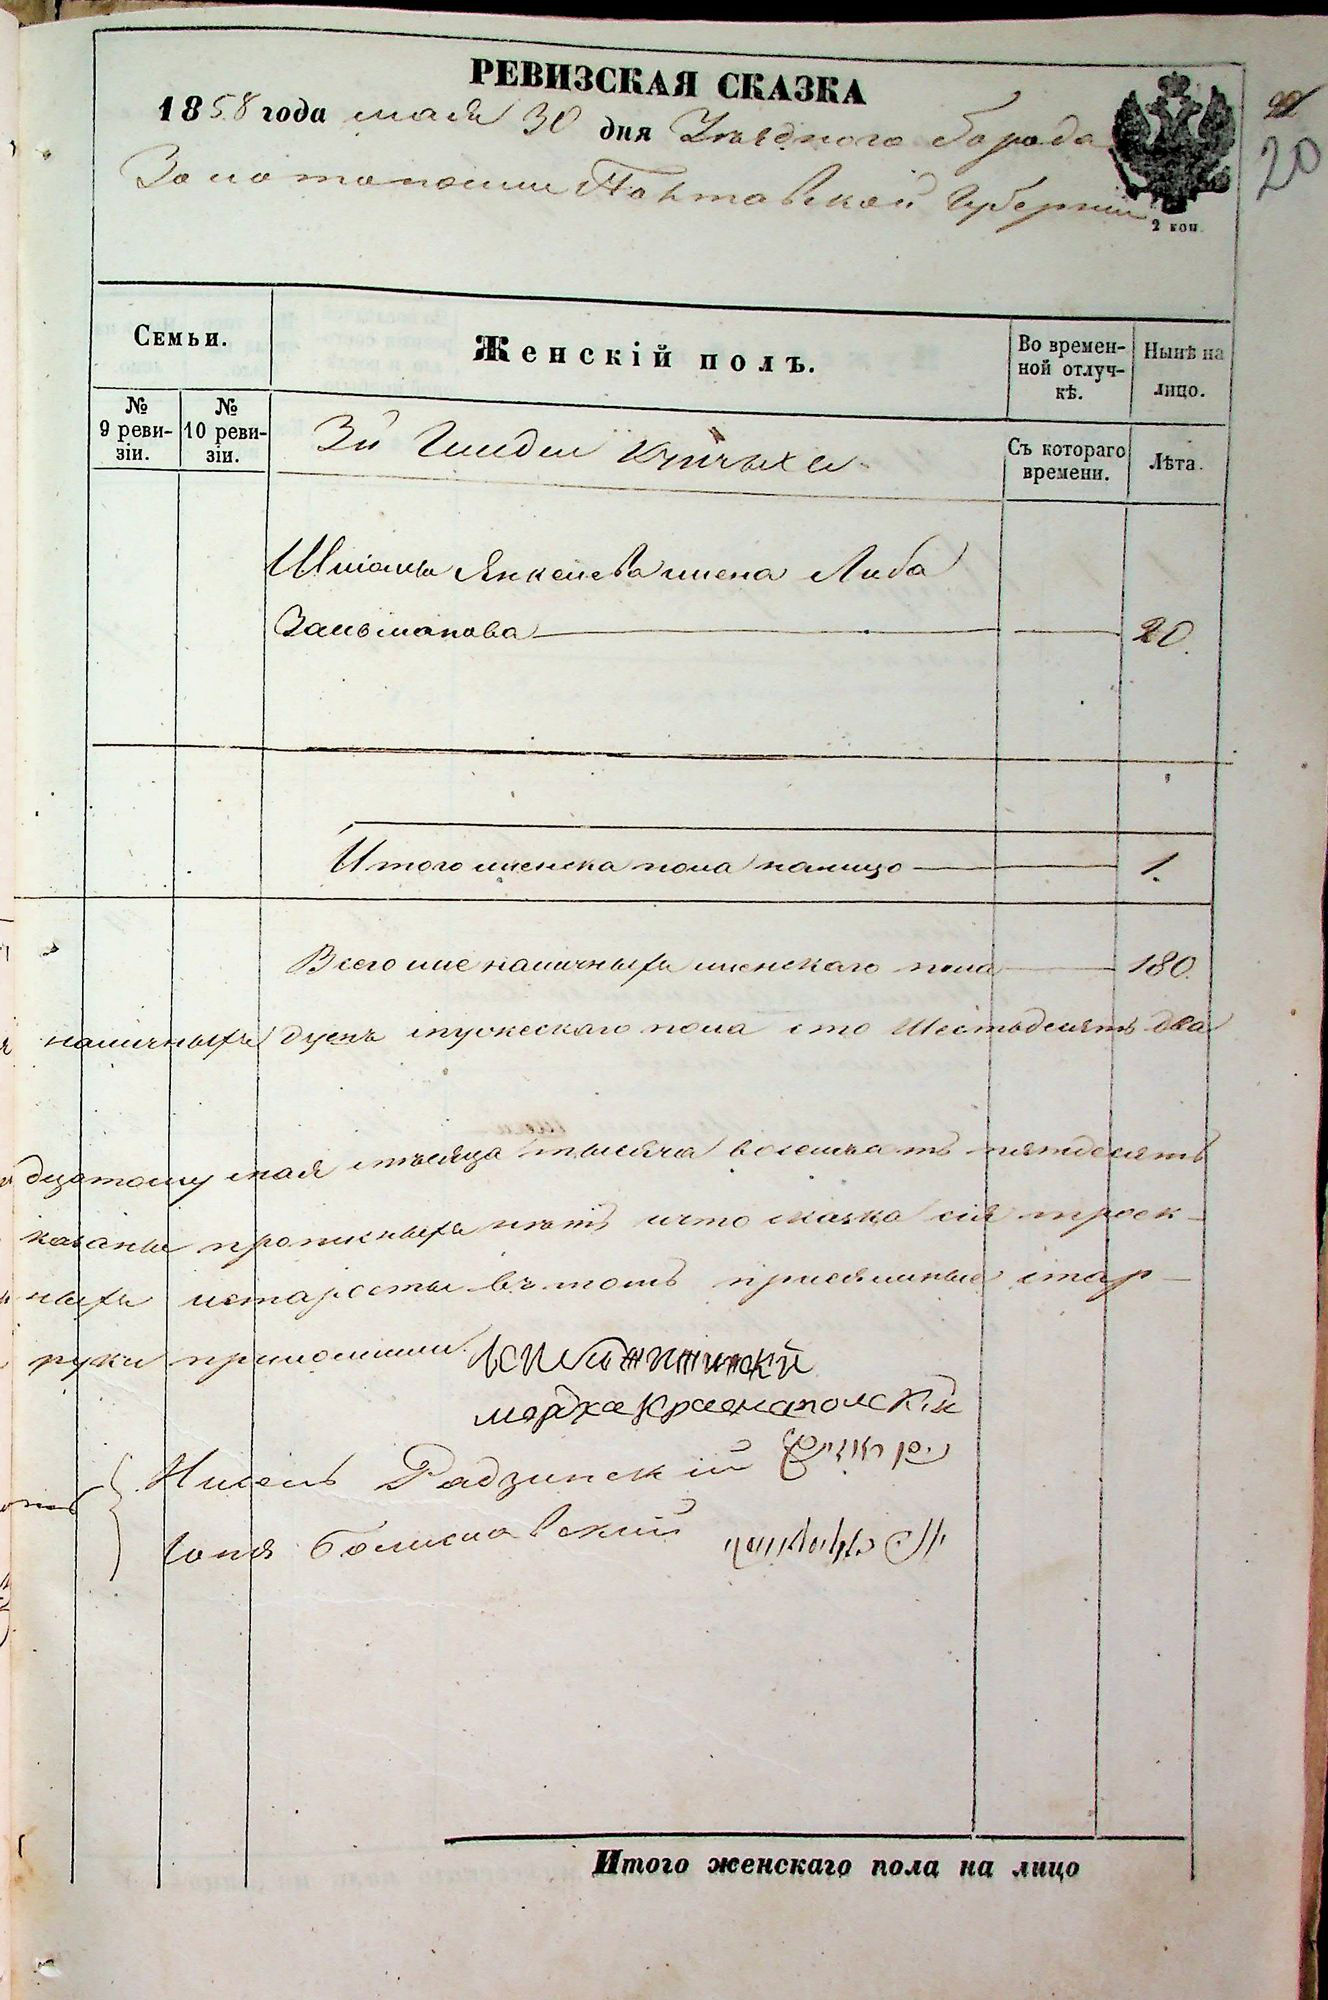 РЕВИЗСКАЯ СКАЗКА
1858 года мая 30 дня Уѣзднаго города
Золотоноши Полтавской Губерніи
2 коп.
20
Семьи.
Женскій полъ.
Во времен-
ной отлуч-
кѣ.
Нынѣ на
лицо.
№
9 реви-
зіи.
№
10 реви-
зіи.
3й Гилдіи Купчыхи
Съ котораго
времени.
Лѣта.
Янкелева жена Либа
Залманова 20.
Итого женска пола налицо 1.
Всего же наличныхъ женскаго пола 180.
наличныхъ душъ мужескаго пола сто шестьдесятъ два
дцатому мая мѣсяца тысяча восемсотъ пятдесятъ
казаны прописныхъ нѣтъ и что сказка сія троек-
ныхъ и старосты въ томъ присяжные стар-
руки приложили
Мордко Краснопольскій
Нисель Радзинскій
Богуславский
Итого женскаго пола на лицо